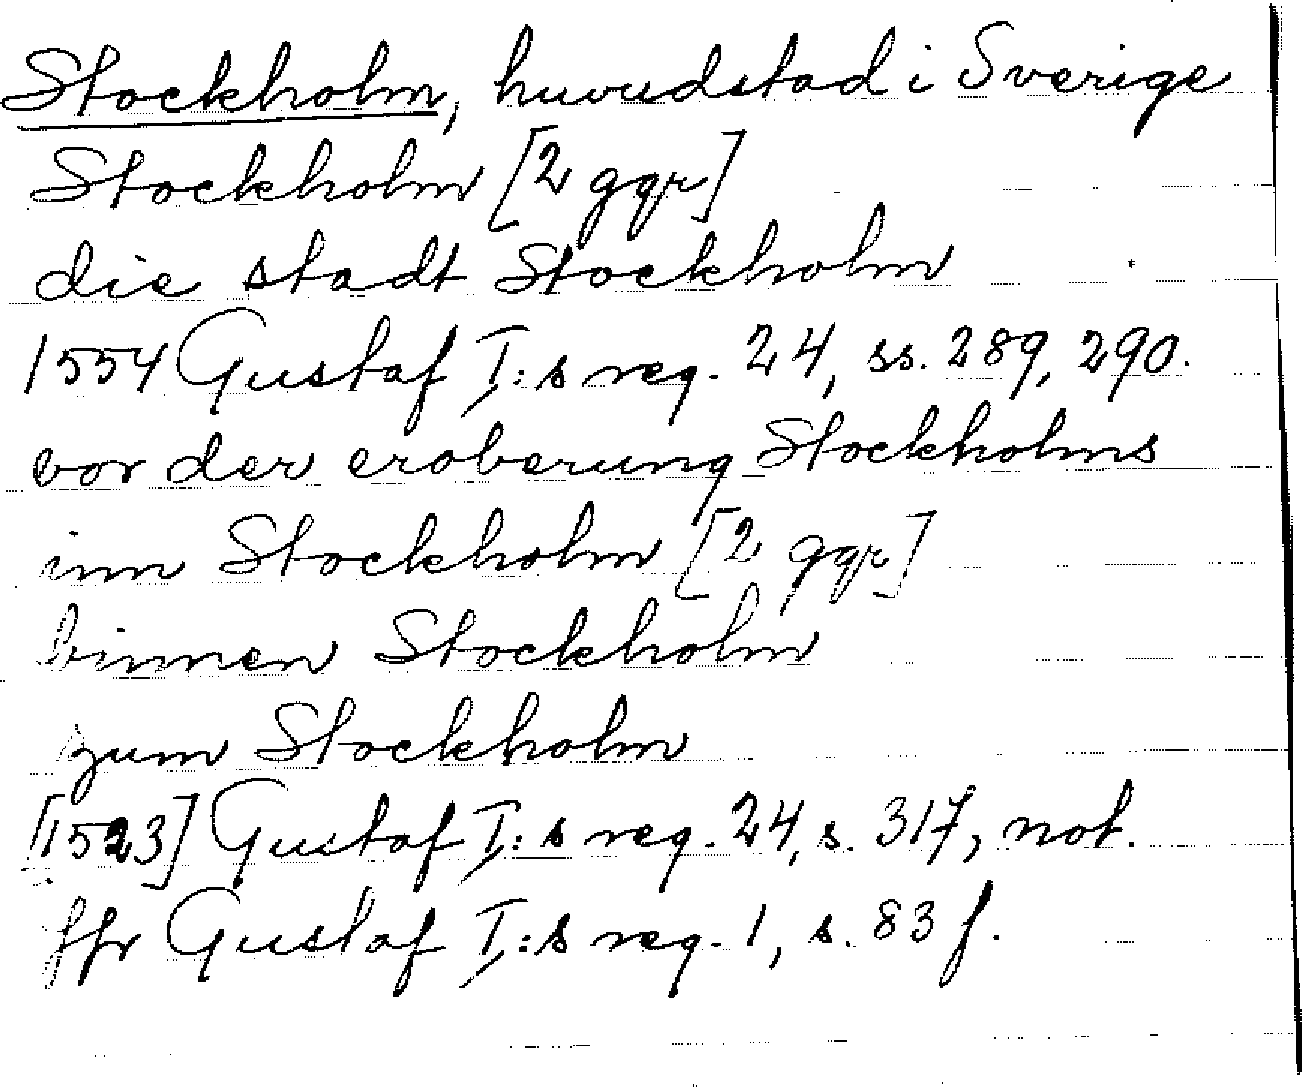 Stockholm, huvudstad i Sverige
Stockholm [2 ggr]
die stadt Stockholm
1554 Gustaf I:s reg. 24, ss. 289, 290.
vor der eroberung Stockholms
inn Stockholm [2 ggr]
binnen Stockholm
zum Stockholm
[1523] Gustaf I:s reg. 24, s. 317, not.
jfr Gustaf I:s reg. 1, s. 83 f.